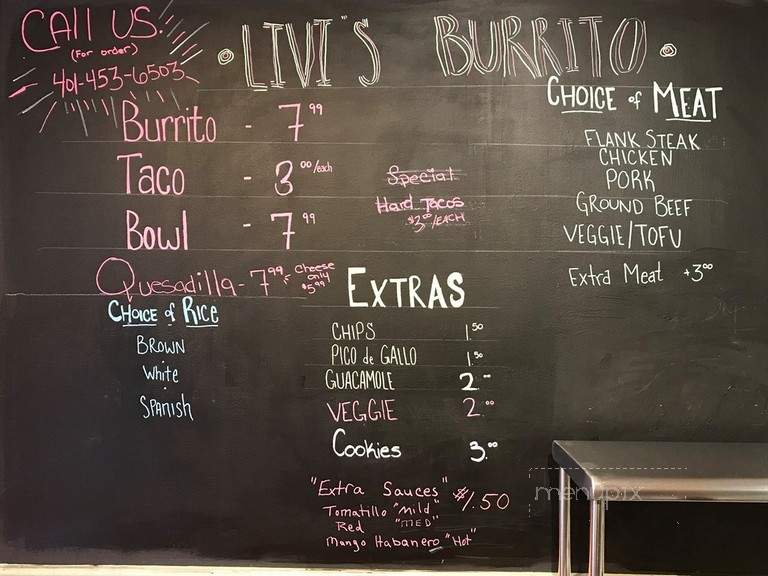 CALL US!
(For order)
401-453-6503
LIVI'S BURRITO
Burrito - 7.99
Taco - 3.00/each
Bowl - 7.99
Quesadilla - 7.99
Cheese only $5.99
Special
Hard Tacos
$3.00/EACH
CHOICE of MEAT
FLANK STEAK
CHICKEN
PORK
GROUND BEEF
VEGGIE/TOFU
Extra Meat +3.00
CHOICE of RICE
BROWN
White
SPANISH
EXTRAS
CHIPS 1.50
PICO de GALLO 1.50
GUACAMOLE 2.00
VEGGIE 2.00
Cookies 3.00
"Extra Sauces" $1.50
Tomatillo "Mild"
Red "MED"
Mango Habanero "Hot"
menupix